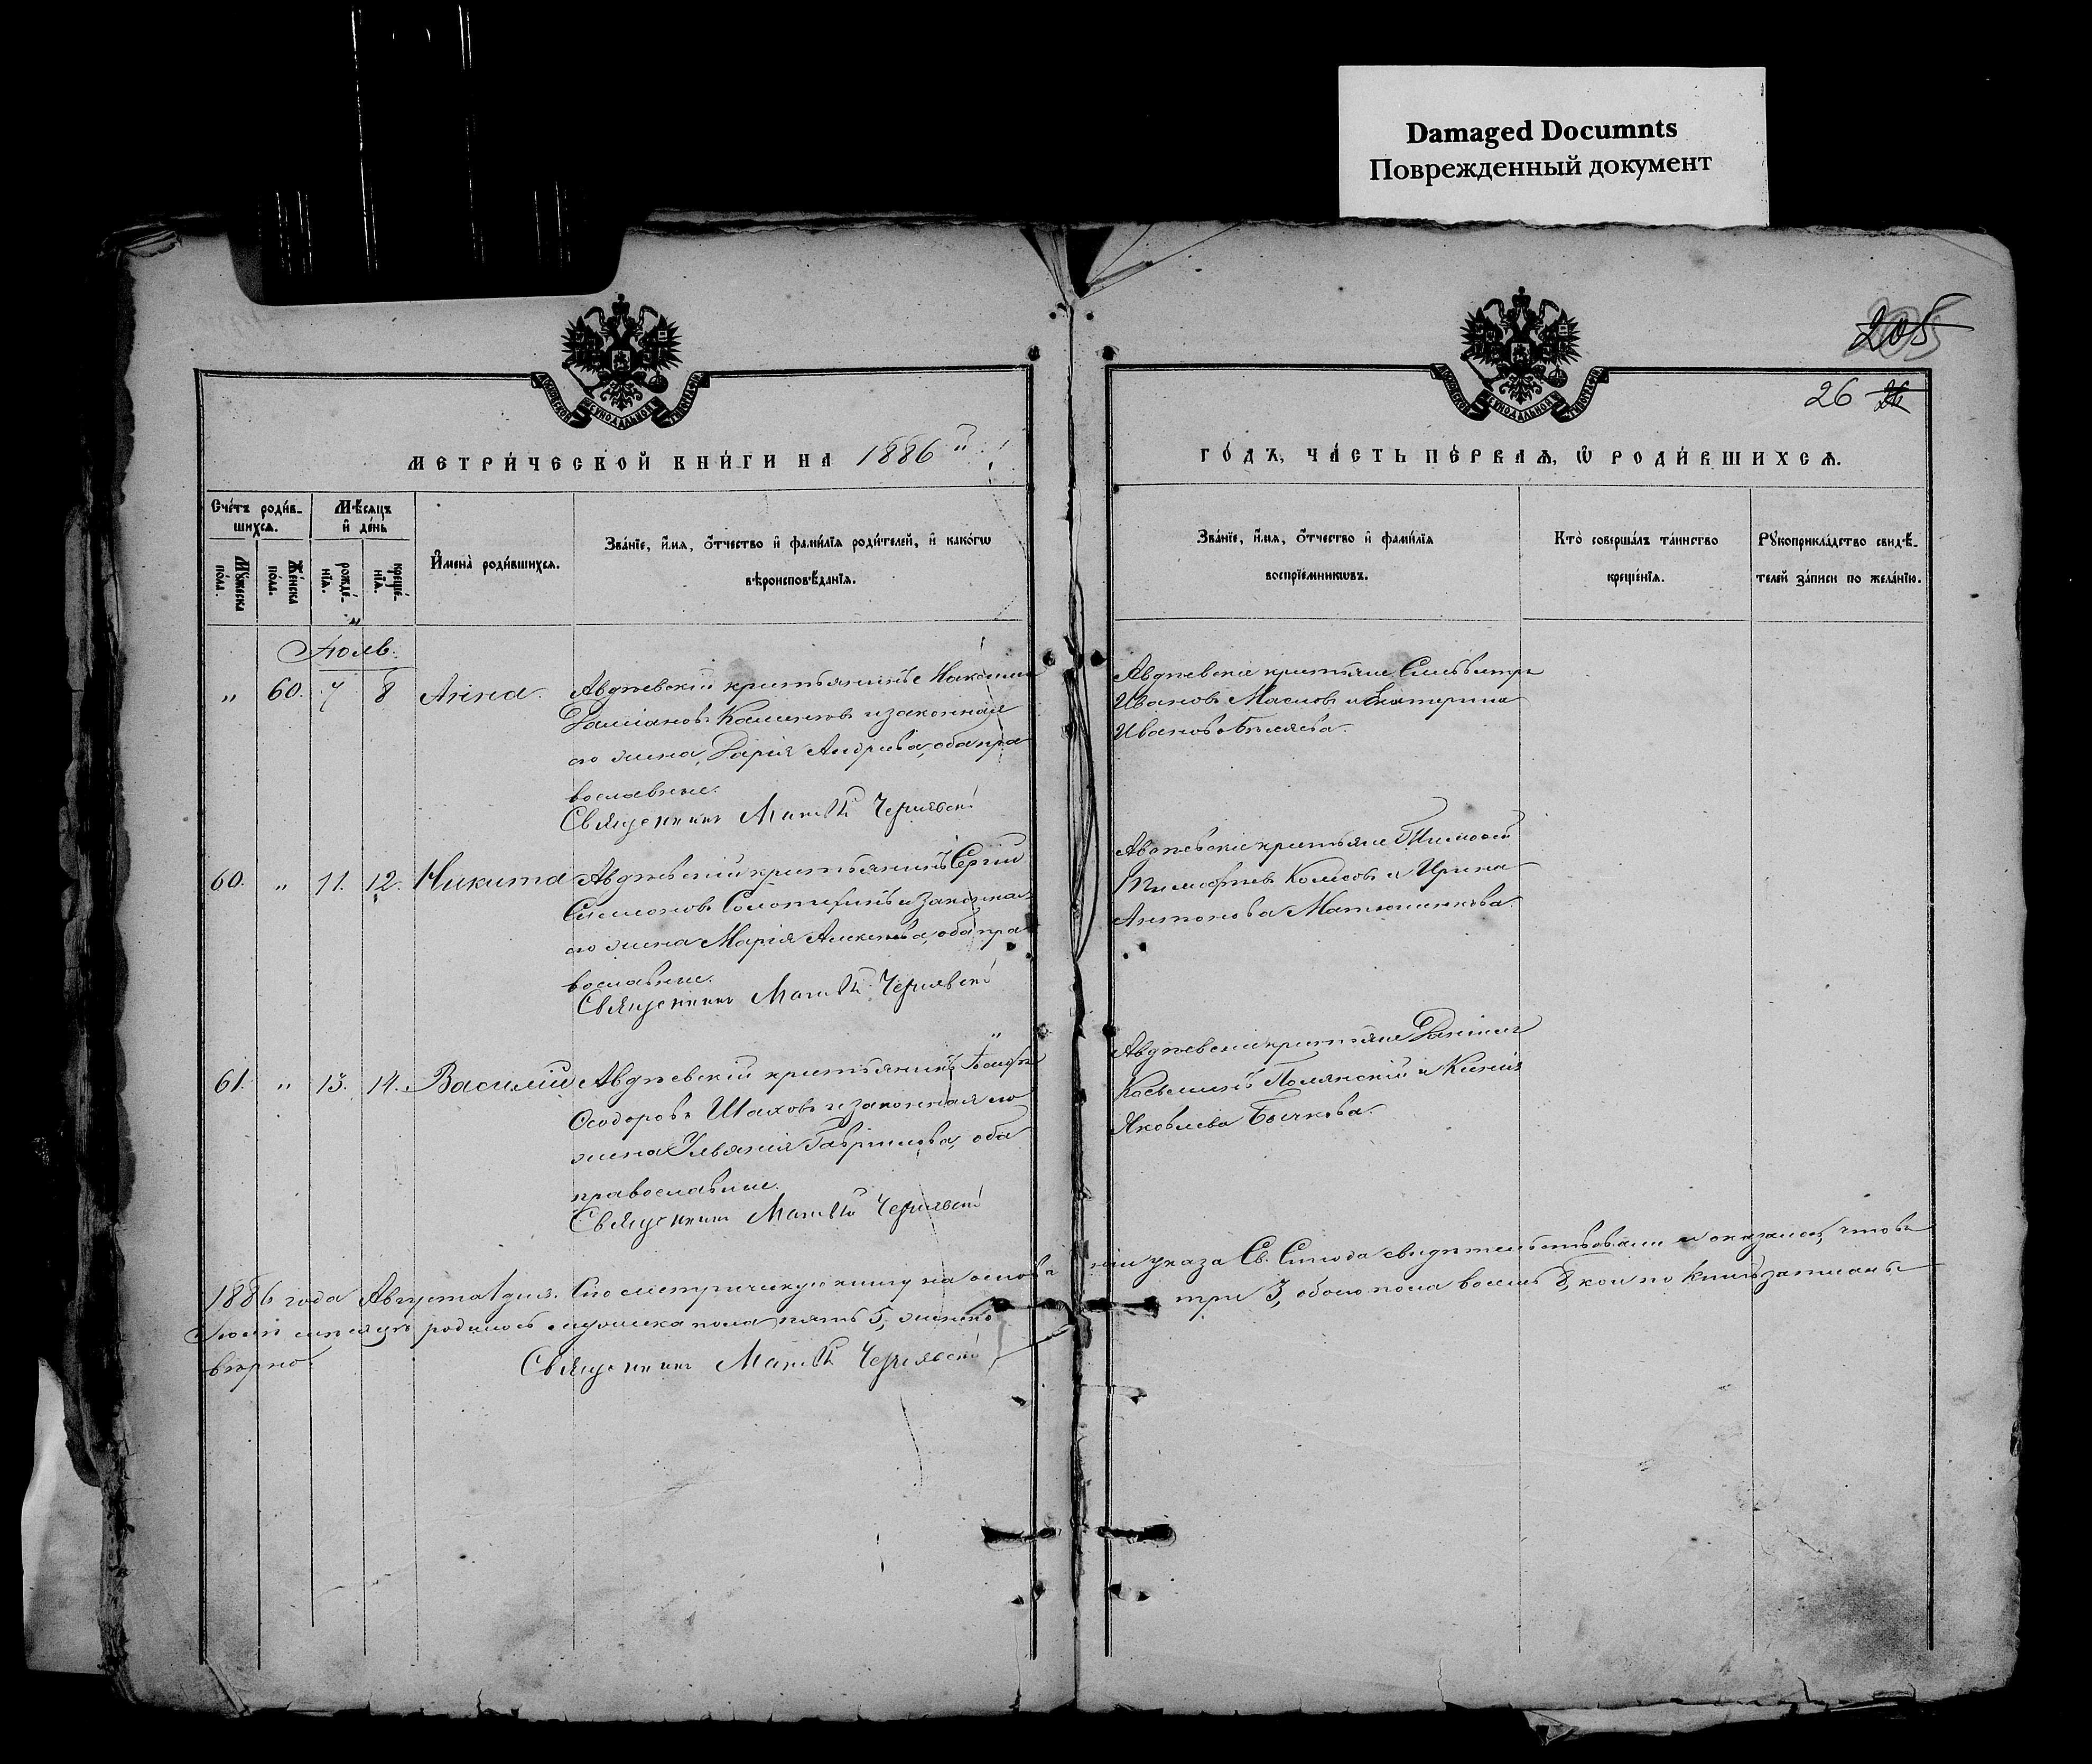 Damaged Documnts
Поврежденный документ
205
26 26
МЕТРИ́ЧЕСКОЙ КНИ́ГИ НА 1886й
ГО́ДЪ, ЧА́СТЬ ПЕ́РВАѦ, Ѽ РОДИ́ВШИХСѦ.
Сче́тъ роди́в-
шихсѧ.
Мꙋ́жеска по́ла.
Же́нска по́ла.
Мѣ́сѧцъ
и҆ де́нь
рожде́-
нїѧ.
креще́-
нїѧ.
И҆мена̀ роди́вшихсѧ.
Зва́нїе, и҆́мѧ, ѻ҆́тчество и҆ фами́лїѧ роди́телей, и҆ како́гѡ
вѣроисповѣ́данїѧ.
Зва́нїе, и҆́мѧ, ѻ҆́тчество и҆ фами́лїѧ
воспрїе́мникѡвъ.
Кто̀ соверша́лъ та́инство
креще́нїѧ.
Рꙋкоприкла́дство свидѣ́-
телей за́писи по жела́нїю.
Іюль.
" 60. 7 8 Анна.
Авдѣевскій крестьянинъ
Даміановъ и законная
его жена, Дарія Андреева, оба пра
вославные.
Священникъ Матвѣй Чернявскій
Авдѣевскіе крестьяне
Ивановъ Масловъ и Екатерина
Иванова Бѣляева.
60. " 11. 12. Никита
Авдѣевскій крестьянинъ Сергій
Симеоновъ и законная
его жена Марія Алексѣева, оба пра
вославные.
Священникъ Матвѣй Чернявскій
Авдѣевскіе крестьяне Тимоѳей
Тимоѳеевъ и Ирина
Антонова Матюшенкова.
61. " 13. 14. Василій
Авдѣевскій крестьянинъ
Ѳеодоровъ Шаховъ и законная его
жена Ульянія Гавріилова, оба
православные.
Священникъ Матвѣй Чернявскій
Авдѣевскіе крестьяне Даніилъ
Косьминъ Полянскій и Ксенія
Яковлева Бычкова.
1886 года Августа 1 дня. Сію метрическую книгу на основа ніи указа Св. Синода свидѣтельствовали и оказалось, что въ
Іюлѣ мѣсяцѣ родилось мужеска пола пять 5, женска три 3, обоего пола восемь 8, кои по книгѣ записаны
вѣрно.
Священникъ Матвѣй Чернявскій